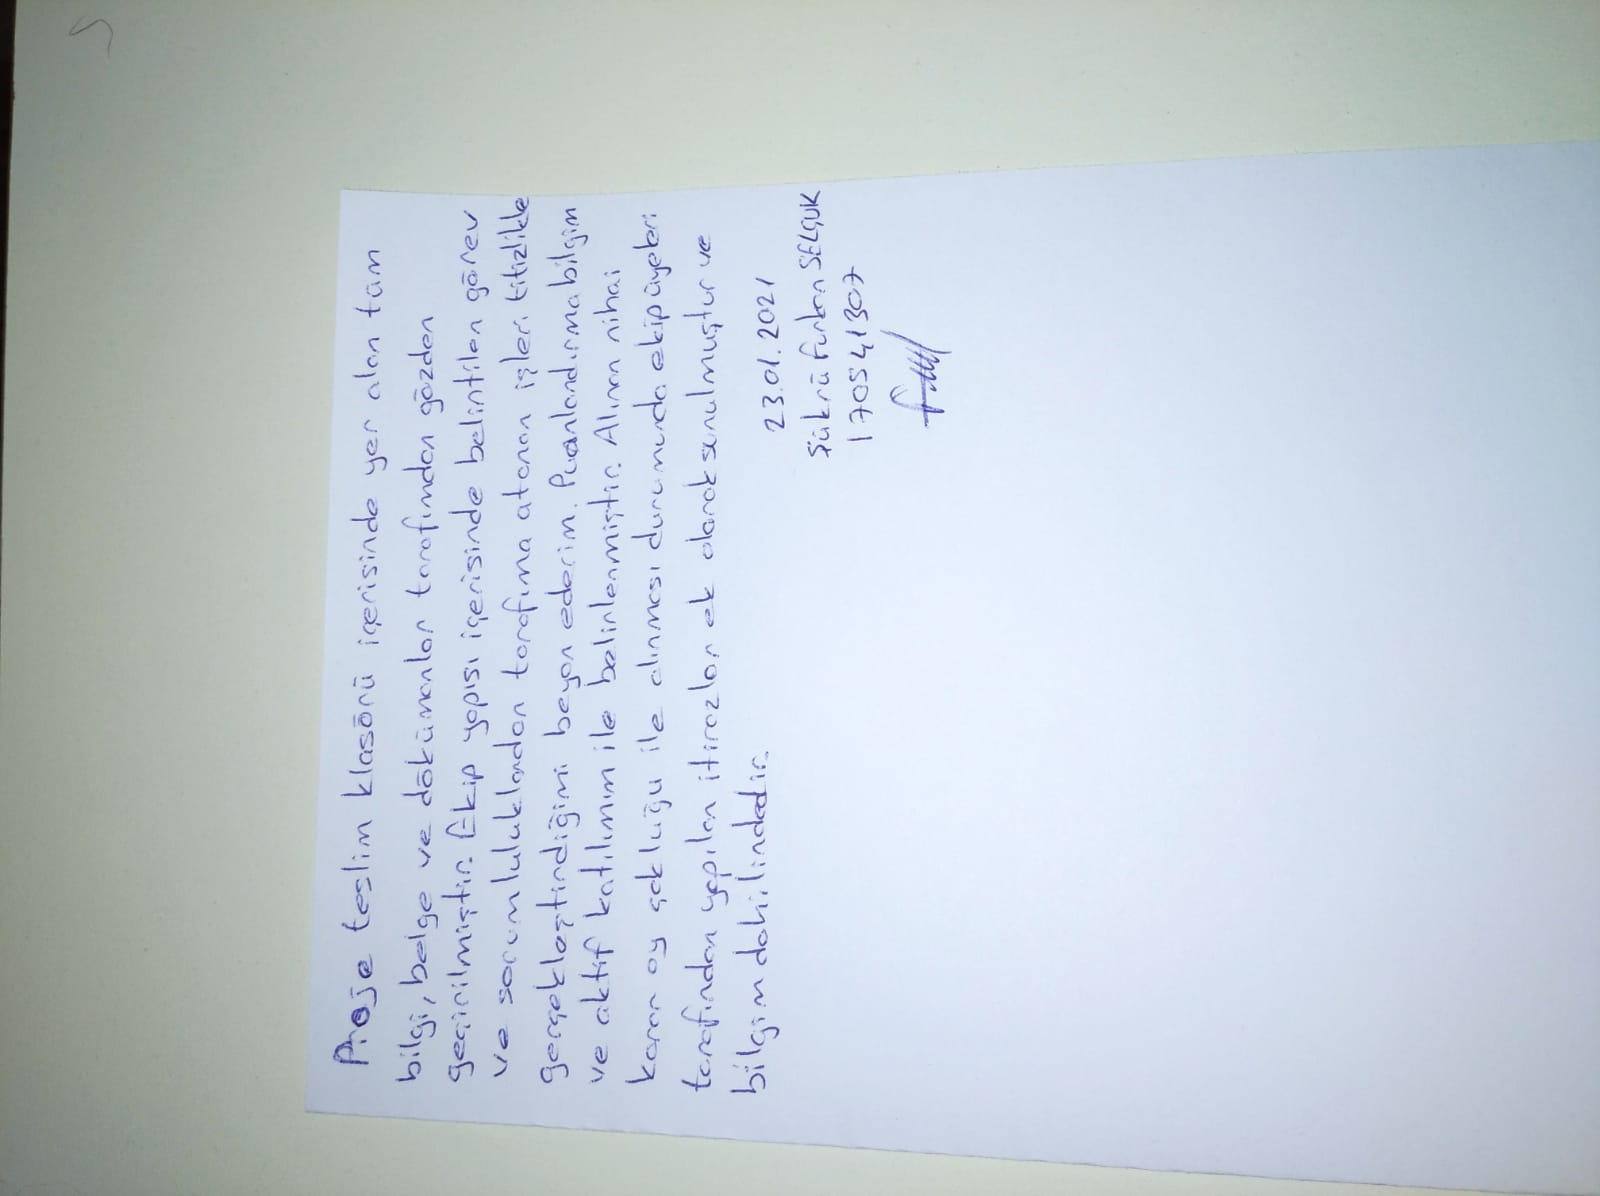 Proje teslim klasörü içerisinde yer alan tam
bilgi, belge ve dökümanlar tarafımdan gözden
geçirilmiştir. Ekip yapısı içerisinde belirtilen görev
ve sorumluluklardan tarafıma atanan işleri titizlikle
gerçekleştirdiğimi beyan ederim. Puanlandırma bilgim
ve aktif katılımım ile belirlenmiştir. Alınan nihai
karar oy çokluğu ile alınması durumunda ekip üyeleri
tarafından yapılan itirazlar ek olarak sunulmuştur ve
bilgim dahilindedir.
23.01.2021
Şükrü Furkan SELÇUK
170541307